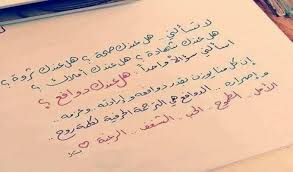 لا تسألني .. هل عندك صحة ؟ هل عندك ثروة ؟
هل عندك شهادة ؟ هل عندك أملاك ؟
اسألني سؤالاً واحداً : هل عندك دوافع ؟
إن كل منا يوزن بقدر دوافعه وإرادته .. وعزمه ..
و إصراره .. الدوافع هي الترجمة الحرفية لكلمة روح ..
الأمل .. الطموح .. الحب .. الشغف .. الرغبة ♡